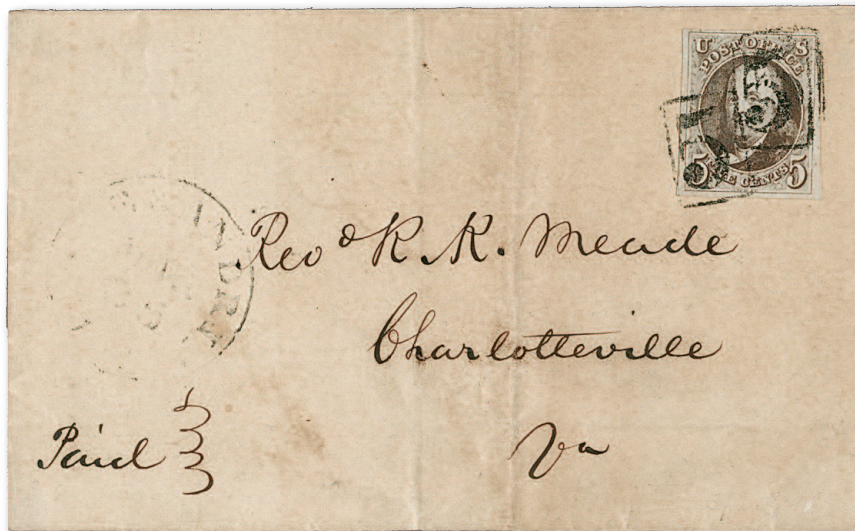 U S
POST OFFICE
5 FIVE CENTS 5
5
10
Revd R. K. Meade
Charlotteville
Va
Paid